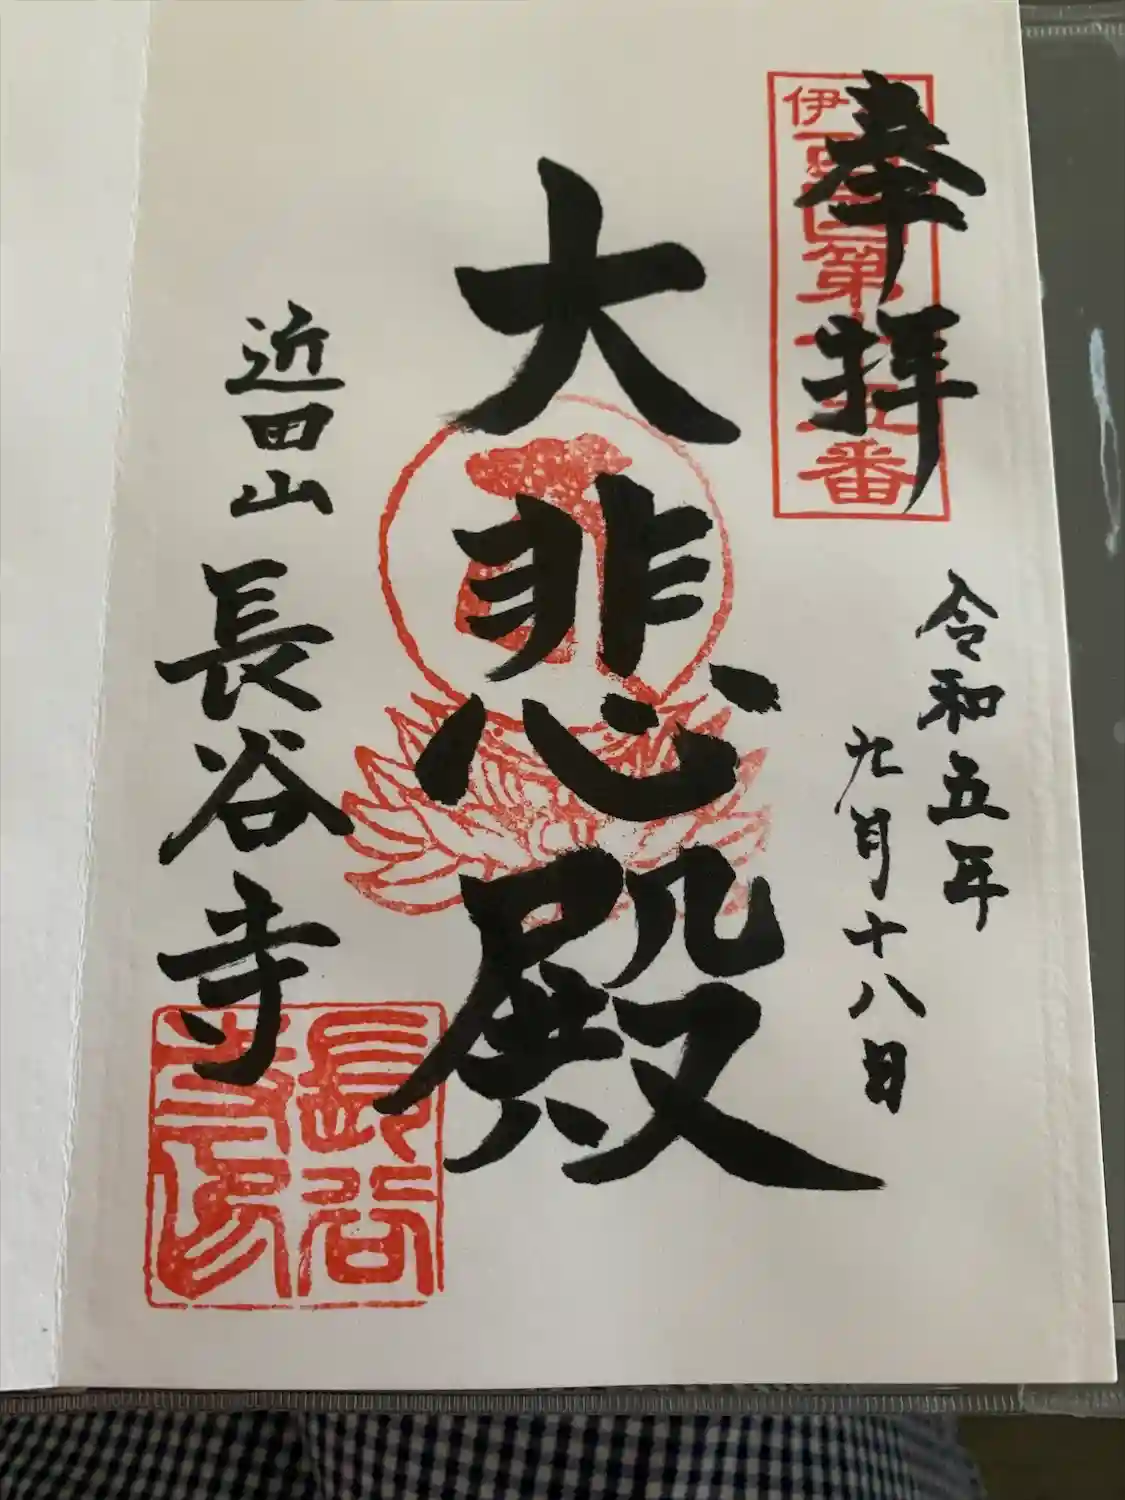 奉拝
伊
西国第十五番
令和五年
九月十八日
大悲殿
近田山 長谷寺
長谷
寺印